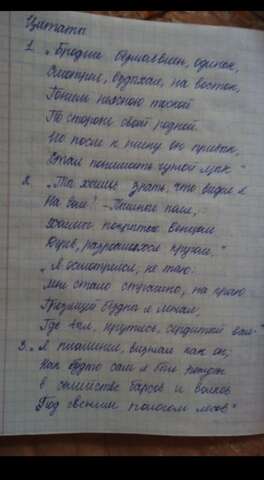 Цитаты
1. „Бродил безмолвен, одинок,
Смотрел, вздыхая, на восток,
Томим неясною тоской
По стороне своей родной.
Но после к плену он привык,
Стал понимать чужой язык"
2. „Ты хочешь знать, что видел я
На воле? - Пышные поля,
Холмы, покрытые венцом
Дерев, разросшихся кругом,"
„Я осмотрелся, не таю:
Мне стало страшно, на краю
Грозящей бездны я лежал,
Где выл, крутясь, сердитый вал"
3. „Я пламенел, визжал как он,
Как будто сам я был рожден
в семействе барсов и волков
Под свежим пологом лесов"